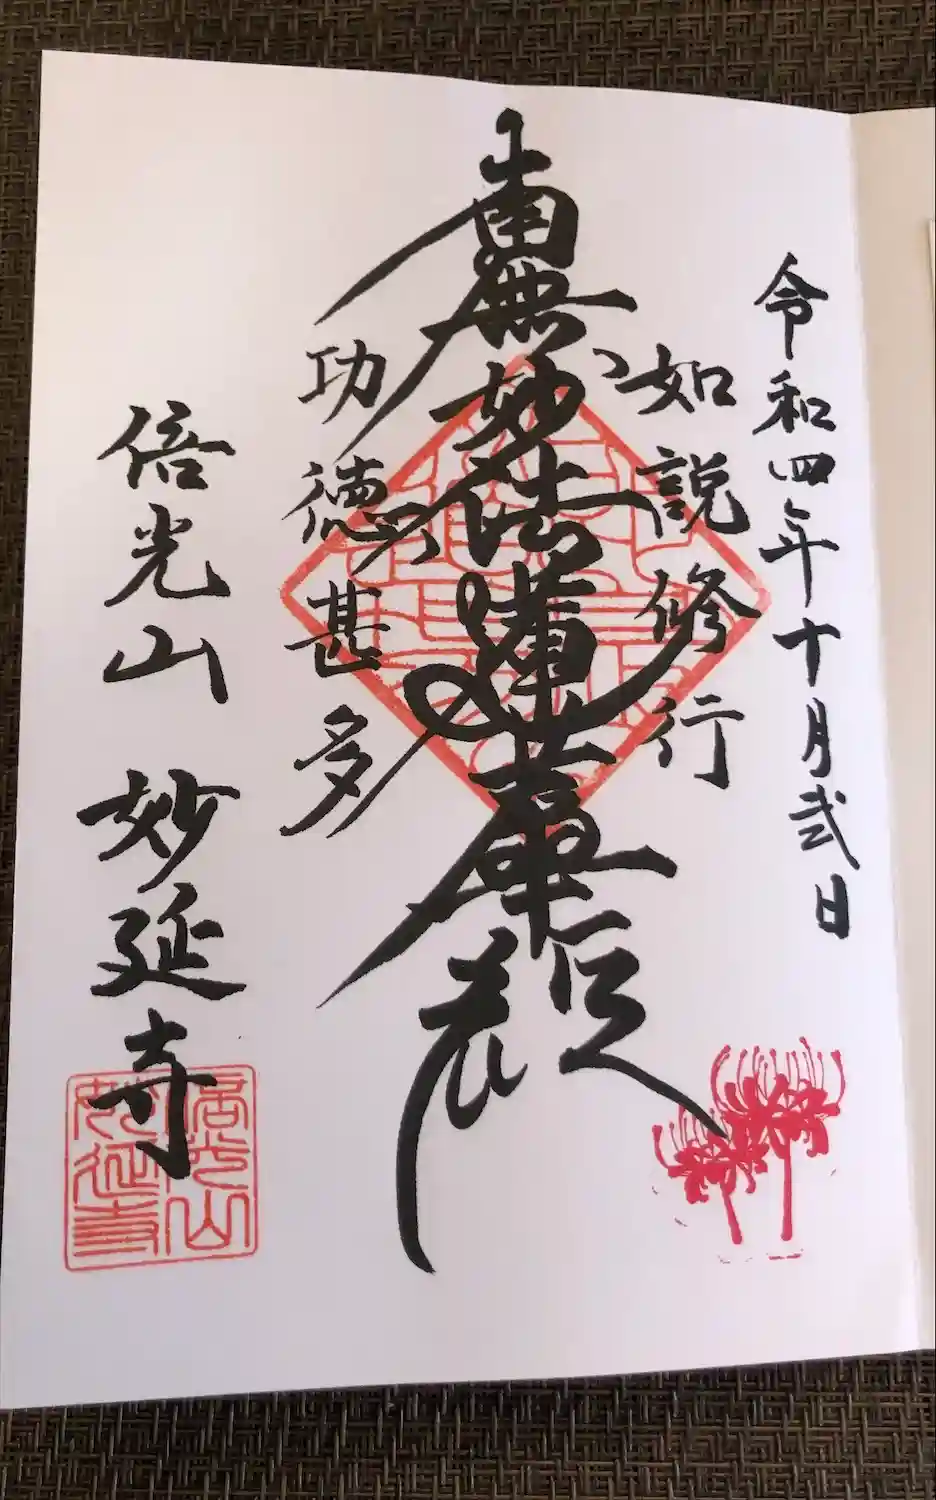 令和四年十月弐日
如説修行
南無妙法蓮華経
功徳甚多
倍光山 妙延寺
倍光山
妙延寺